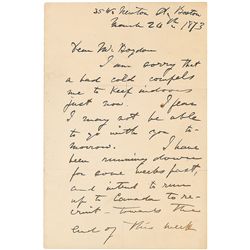 Newton St, Boston
March 20th, 1893
Dear Mr. Bogdon
I am sorry that
a bad cold compels
me to keep indoors
just now. I fear
I may not be able
to go with you to-
morrow. I have
been running down
for some weeks past,
and intend to run
up to Canada to re-
cruit - towards the
end of this week